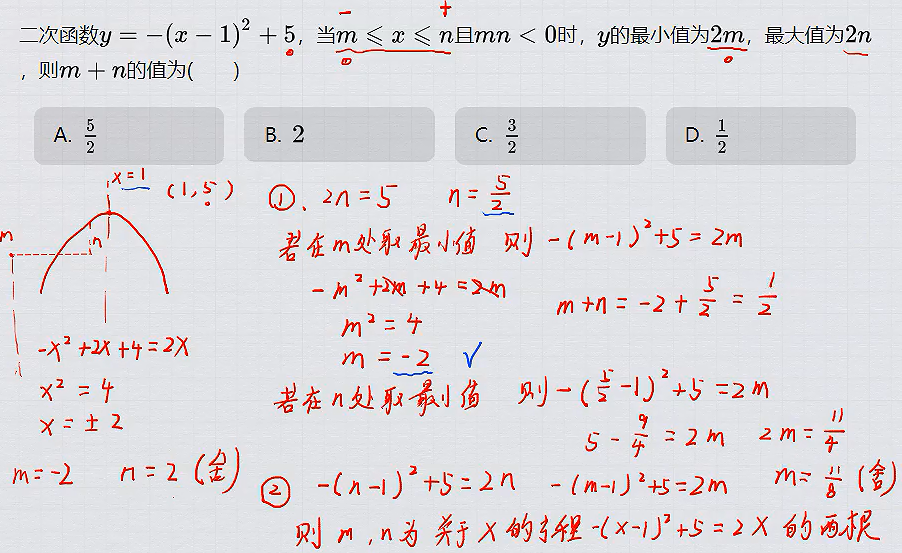 二次函数y = −(x − 1)² + 5，当m ⩽ x ⩽ n且mn < 0时，y的最小值为2m，最大值为2n
，则m + n的值为(　　)
− +
A. 5/2 B. 2 C. 3/2 D. 1/2
x=1 (1,5)
m n
-x²+2x+4=2x
x²=4
x=±2
m=-2 n=2 (舍)
①、2n=5 n=5/2
若在m处取最小值 则 -(m-1)²+5=2m
-m²+2m+4=2m
m²=4
m=-2 ✓
m+n=-2+5/2=1/2
若在n处取最小值 则-(5/2-1)²+5=2m
5-9/4=2m 2m=11/4
m=11/8 (舍)
② -(n-1)²+5=2n -(m-1)²+5=2m
则 m,n为关于x的方程-(x-1)²+5=2x的两根